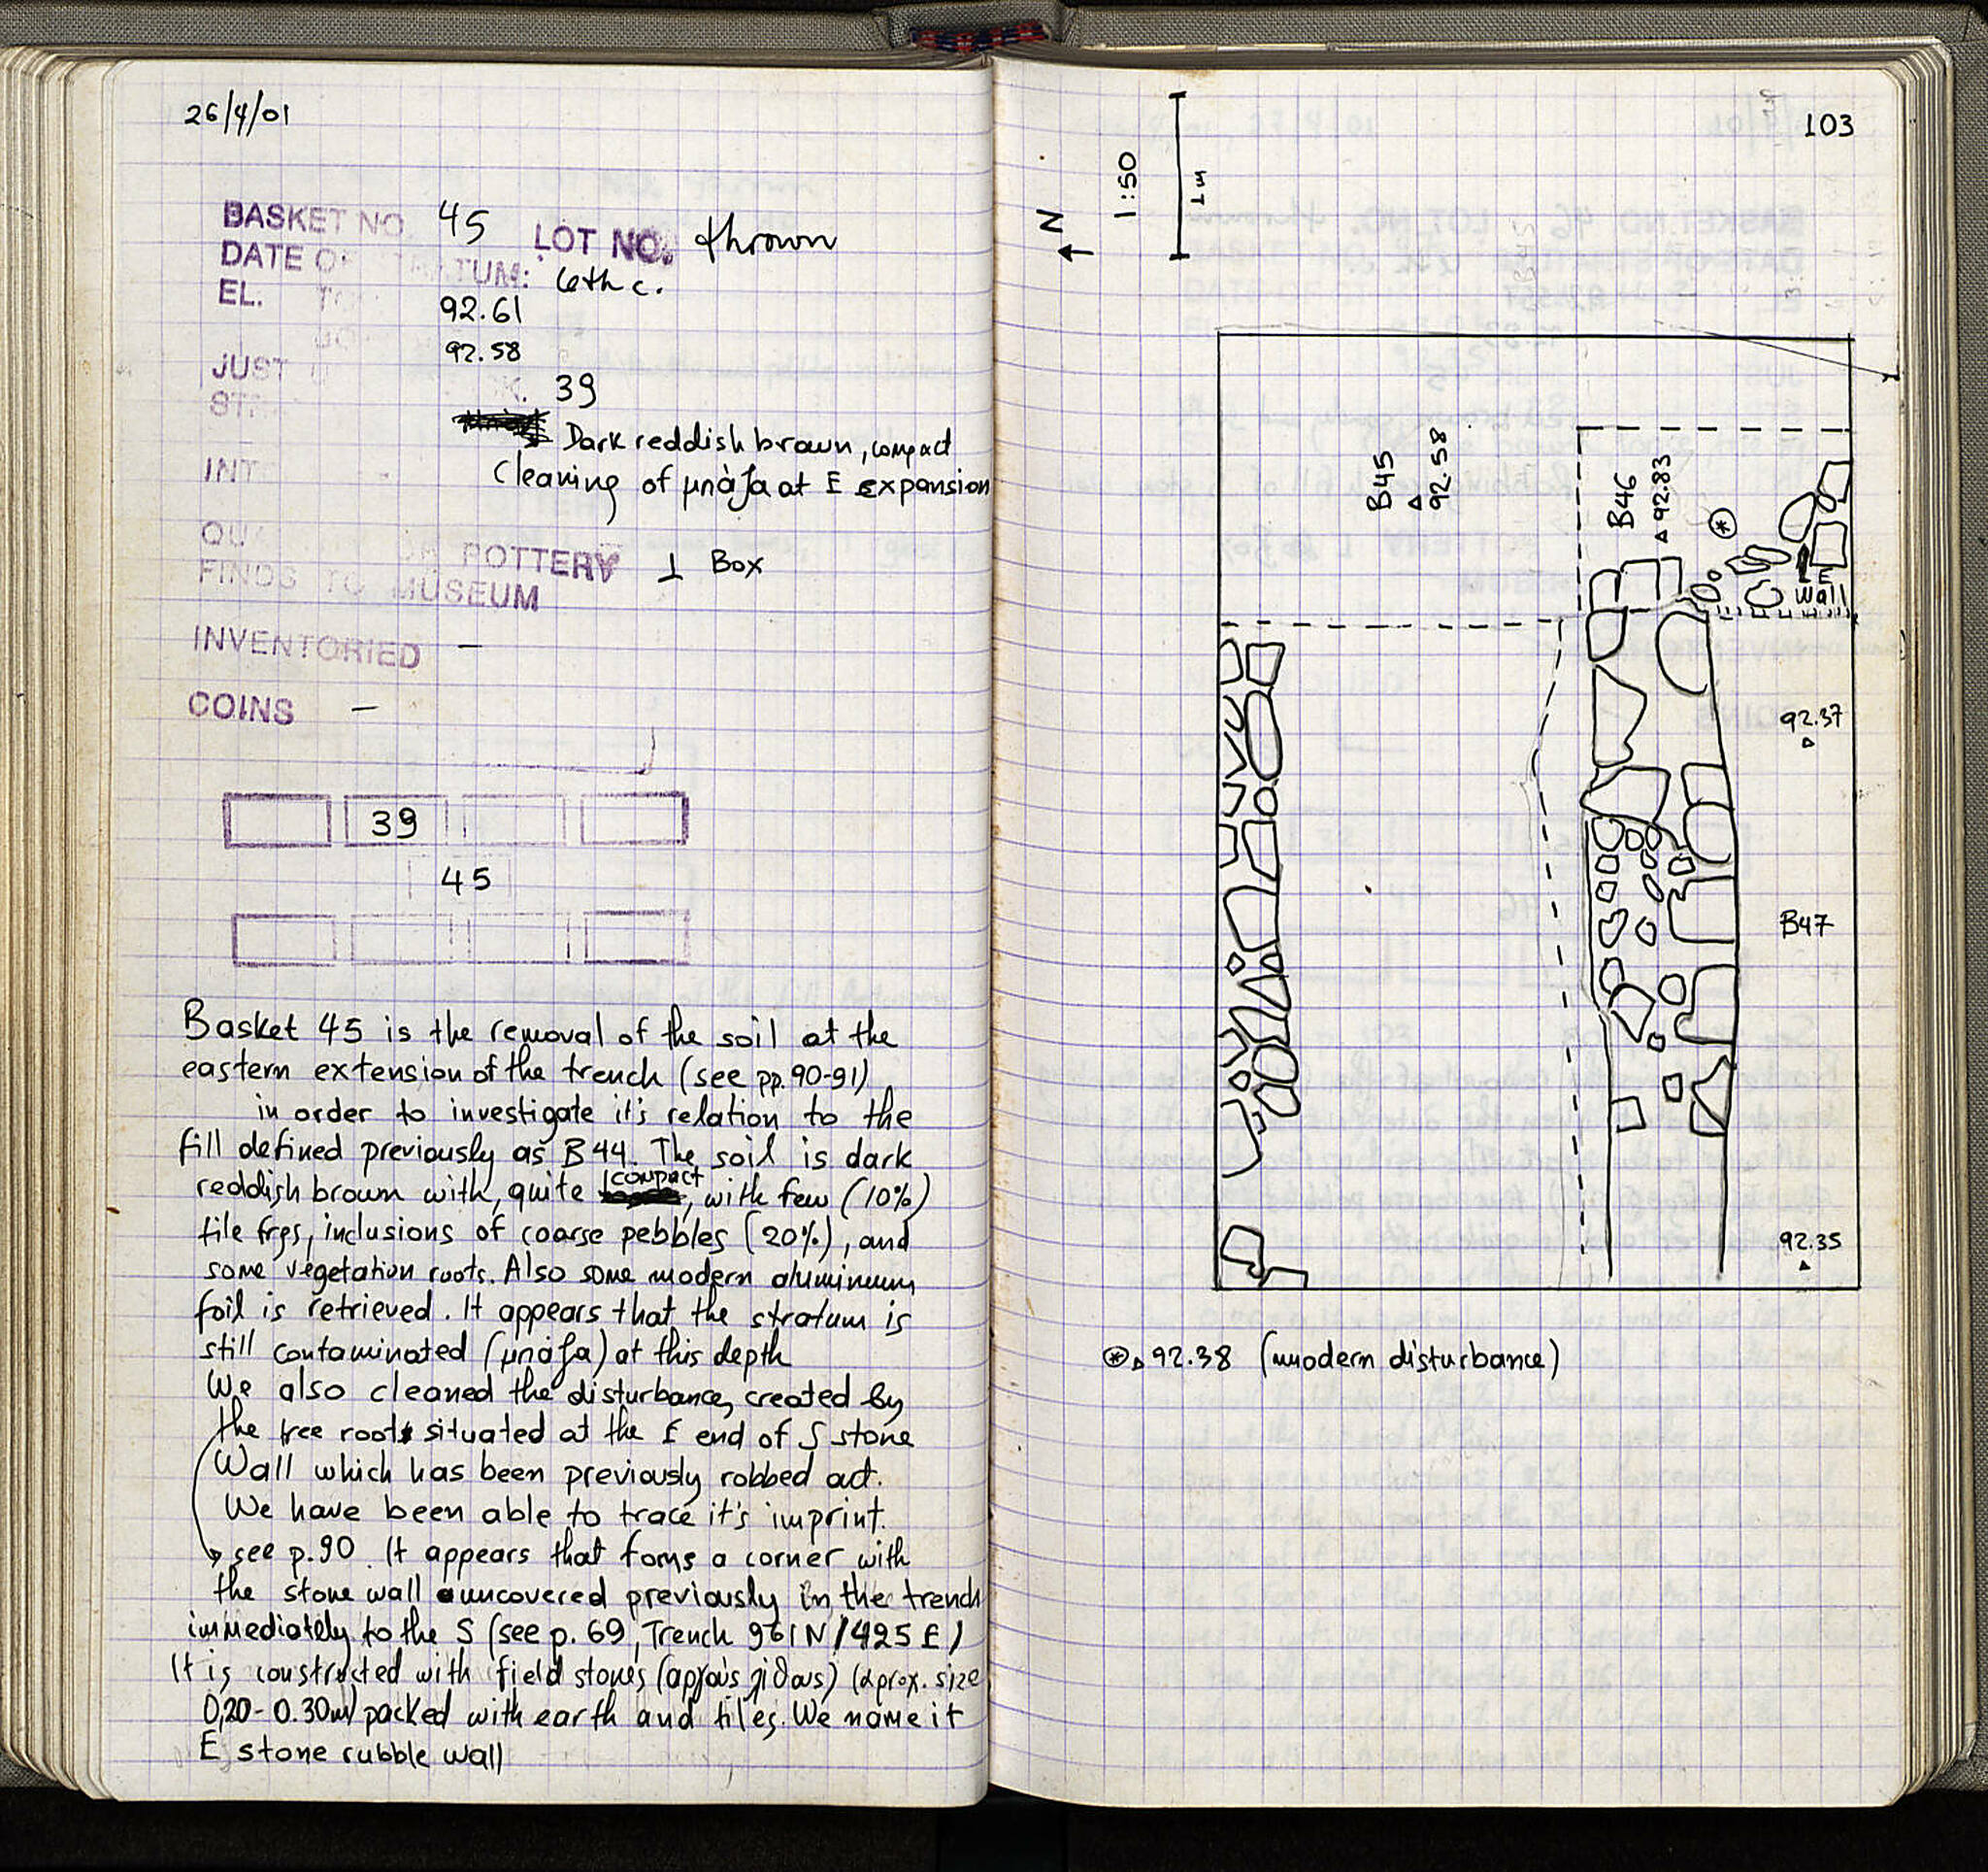 26/4/01
BASKET NO. 45 LOT NO. thrown
DATE OF STRATUM: 6th c.
EL. TOP 92.61
92.58
JUST 39
Dark reddish brown, compact
Cleaning of μπάζα at E expansion
POTTERY 1 Box
FINDS TO MUSEUM
INVENTORIED –
COINS –
39
45
Basket 45 is the removal of the soil at the
eastern extension of the trench (see pp. 90-91)
in order to investigate it's relation to the
fill defined previously as B44. The soil is dark
reddish brown with, quite compact, with few (10%)
tile frgs, inclusions of coarse pebbles (20%), and
some vegetation roots. Also some modern aluminum
foil is retrieved. It appears that the stratum is
still contaminated (μπάζα) at this depth
We also cleaned the disturbance, created by
the tree roots situated at the E end of S stone
Wall which has been previously robbed out.
We have been able to trace it's imprint.
see p. 90. It appears that forms a corner with
the stone wall uncovered previously in the trench
immediately to the S (see p. 69, Trench 961N/425E)
It is constructed with field stones (αργούς λίθους) (aprox. size
0,20-0.30m) packed with earth and tiles. We name it
E stone rubble wall
103
N
1:50
1m
B45
92.58
B46
92.83
*
E
Wall
92.37
B47
92.35
* 92.38 (modern disturbance)